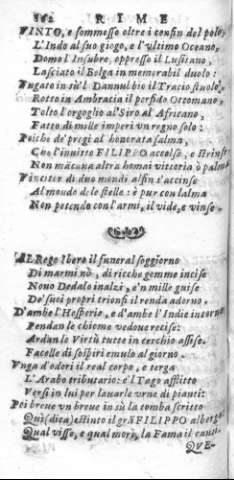 362 RIME
VINTO, e sommesso oltre i confin del polo,
L'Indo al suo giogo, e l'ultimo Oceano,
Domo l'Insubre, oppresso il Lusitano,
Lasciato il Belga in memorabil duolo:
Fugato in sù'l Dannubbio il Tracio stuolo,
Rotto in Ambracia il perfido Ottomano,
Tolto l'orgoglio al Siro al Africano,
Fatto di mille imperi vn regno solo:
Poiche de' pregi al honorata salma,
Che l'inuitto FILIPPO accolse, e strinse
Non mācaua altra homai vittoria ò palma
Vincitor di duo mondi alfin l'accinse
Al mondo de le stelle: è pur con l'alma
Non potendo con l'armi, il vide, e vinse.
AL Rege Ibero il funeral soggiorno
Di marmi nò, di ricche gemme incise
Nouo Dedalo inalzi, e'n mille guise
De' suoi propri trionfi il renda adorno.
D'ambe l'Hesperie, e d'ambe l'Indie intorno
Pendan le chiome vedoue recise:
Ardan le Virtù tutte in cerchio assise.
Facelle di sospiri emulo al giorno.
Vnga d'odori il real corpo, e terga
L'Arabo tributario: e'l Tago afflitto
Versi in lui per lauarle vrne di pianti:
Poi breue vn breue in sù la tomba scritto
Quì (dica) estinto il grā FILIPPO alberga
Qual visse, e qual morì, la Fama il canti.
QVE-